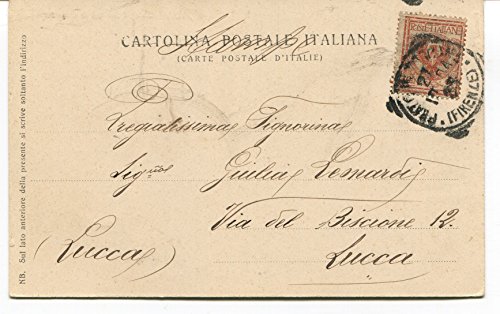 Stampe
CARTOLINA POSTALE ITALIANA
(CARTE POSTALE D'ITALIE)
POSTE ITALIANE
(FIRENZE)
Pregiatissima Signorina
Sig.na Giulia Lemardi
Via del Biscione 12.
(Lucca) Lucca
NB. Sul lato anteriore della presente si scrive soltanto l'indirizzo